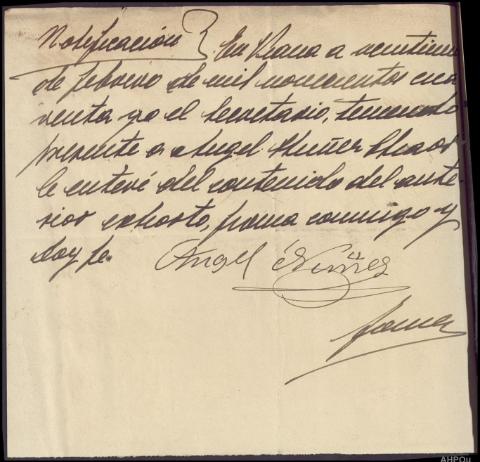 Notificación} En Viana a veintiuno
de febrero de mil novecientos cua
renta yo el Secretario, teniendo
presente a Angel Núñez
le enteré del contenido del ante
rior exhorto, firma conmigo y
doy fe.
Angel Núñez
AHPOu